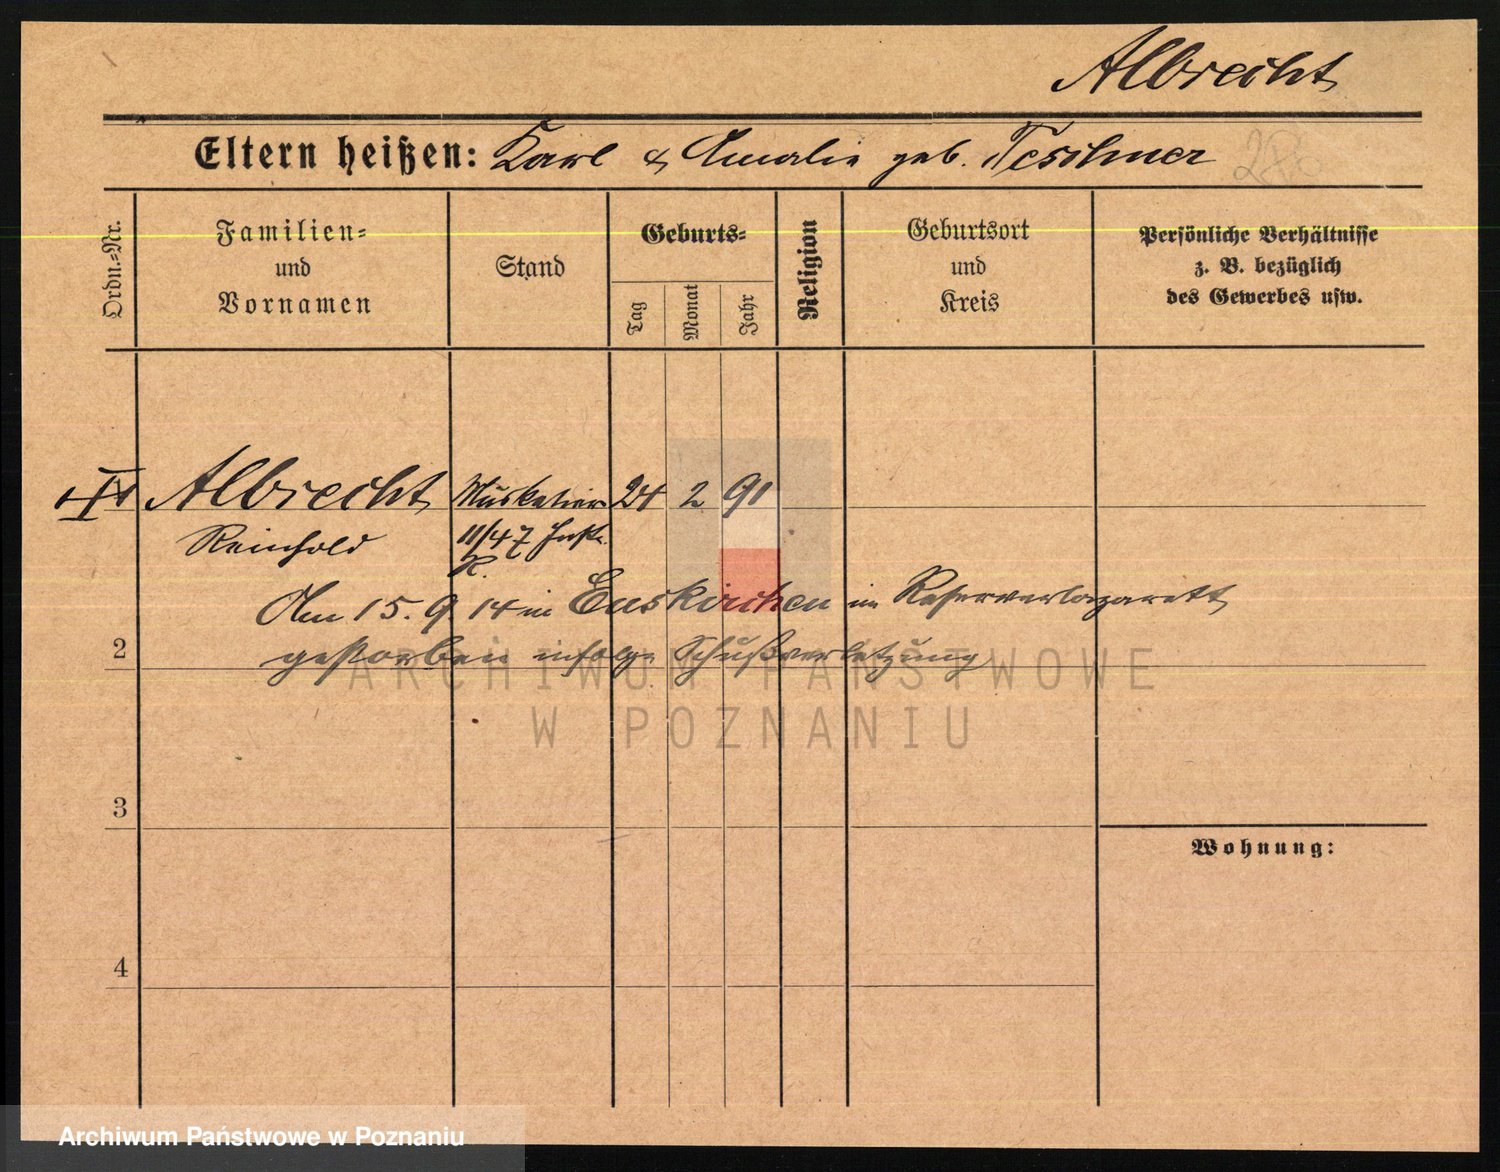 Albrecht
Eltern heißen: Karl & Amalie geb. Teschner
Ordn.-Nr.
Familien-
und
Vornamen
Stand
Geburts-
Tag
Monat
Jahr
Religion
Geburtsort
und
Kreis
Persönliche Verhältnisse
z. B. bezüglich
des Gewerbes usw.
Albrecht Musketier 24 2 91
Reinhold 11/47 Inftr.
R.
Am 15. 9. 14 in Euskirchen im Reservelazarett
2 gestorben infolge Schußverletzung
ARCHIWUM PAŃSTWOWE
W POZNANIU
3
Wohnung:
4
Archiwum Państwowe w Poznaniu